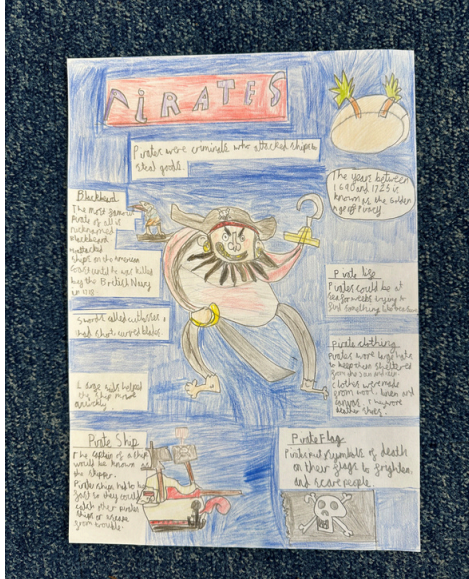 PiRATES
Pirates were criminals who attacked ships to
steal goods.
The years between
1690 and 1725 is
known as the Golden
Age of Piracy
Blackbeard
The most famous
Pirate of all is
nicknamed
Blackbeard
attacked
ships on the American
coast until he was killed
by the British Navy
in 1718
Swords called cutlasses
had short curved blades
Pirate life
Pirates could be at
sea for weeks trying to
find something
Pirate clothing
Pirates wore large hats
to keep them sheltered
from the sun and
clothes were made
from wool, linen and
canvas. They wore
leather shoes.
A large helped
the ship move
quickly
Pirate Ship
The captain of a ship
would be known
the skipper.
Pirate ships had to be
fast so they could
catch other pirates
ships or escape
from trouble.
Pirate Flag
Pirates put symbols of death
on their flags to frighten
and scare people.